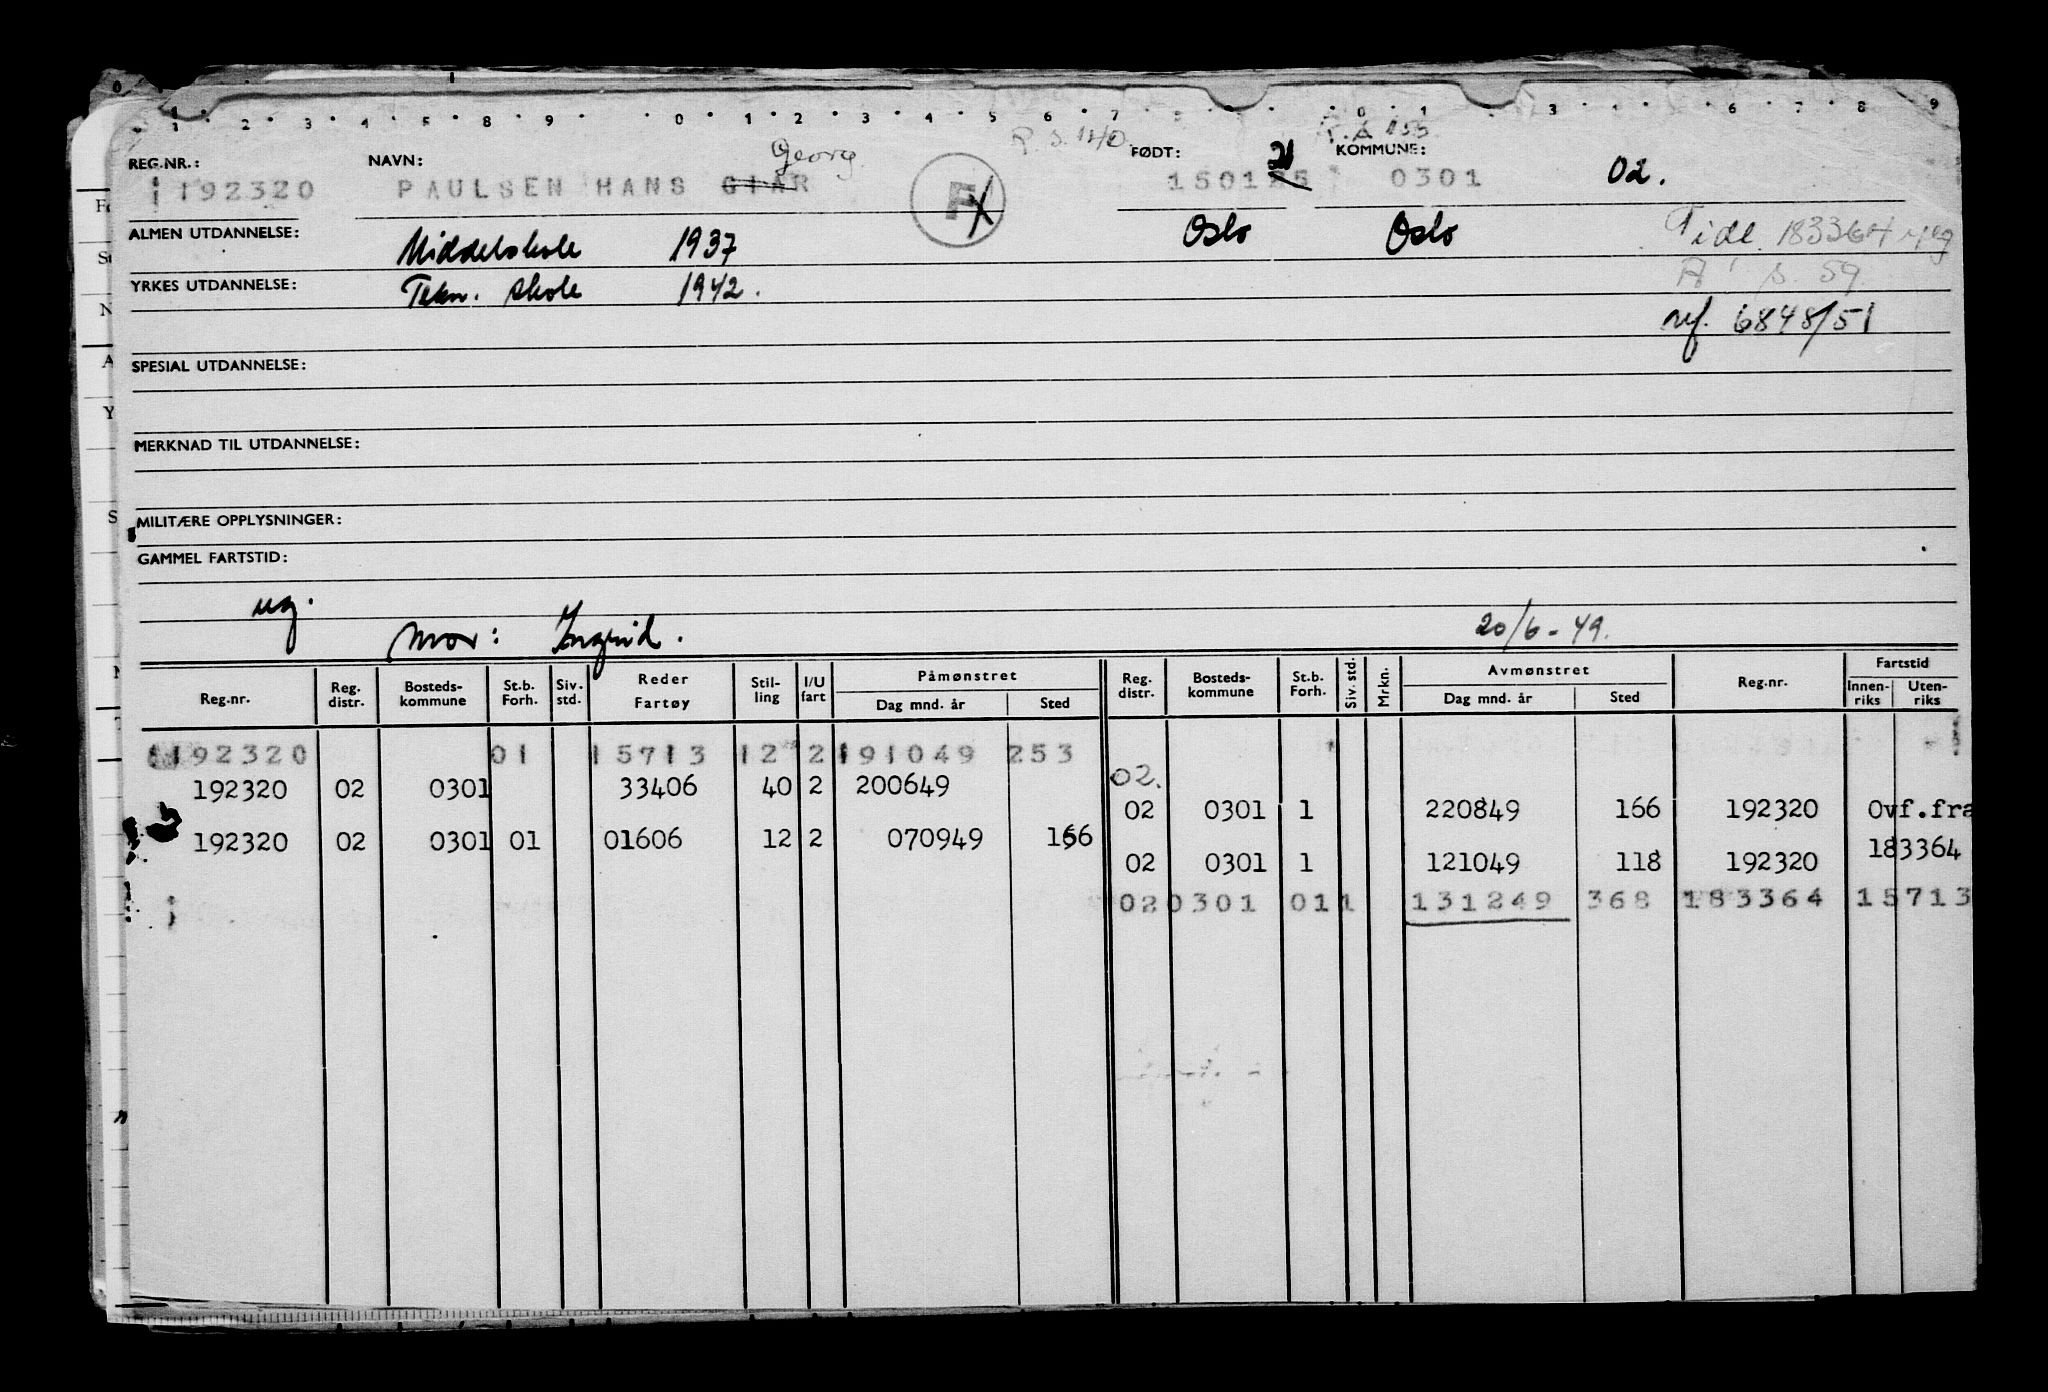 0
1 2 3 4 5 8 9 0 1 2 3 4 5 6 7 8 0 1 3 6 7 8 9
Georg R. s. 140. R. s 155
REG.NR.: NAVN: FØDT: 21 KOMMUNE: 02.
192320 PAULSEN HANS GIAR F X 150125 0301
ALMEN UTDANNELSE: Middelskole 1937 Oslo Oslo Tidl. 183364 ug
YRKES UTDANNELSE: Tekn. skole 1942. A s. 59
ref. 6848/51
SPESIAL UTDANNELSE:
MERKNAD TIL UTDANNELSE:
MILITÆRE OPPLYSNINGER:
GAMMEL FARTSTID:
ug.
Mor: Ingrid. 20/6-49.
Reg.nr. Reg. distr. Bosteds-kommune St.b. Forh. Siv. std. Reder Fartøy Stil-ling I/U fart Påmønstret Dag mnd. år Sted Reg. distr. Bosteds-kommune St.b. Forh. Siv. std. Mrkn. Avmønstret Dag mnd. år Sted Reg.nr. Fartstid Innen-riks Uten-riks
192320 01 15713 12 2 191049 253
192320 02 0301 33406 40 2 200649 02.
02 0301 1 220849 166 192320 Ovf.fra
192320 02 0301 01 01606 12 2 070949 166 183364
02 0301 1 121049 118 192320
02 0301 01 1 131249 368 183364 15713